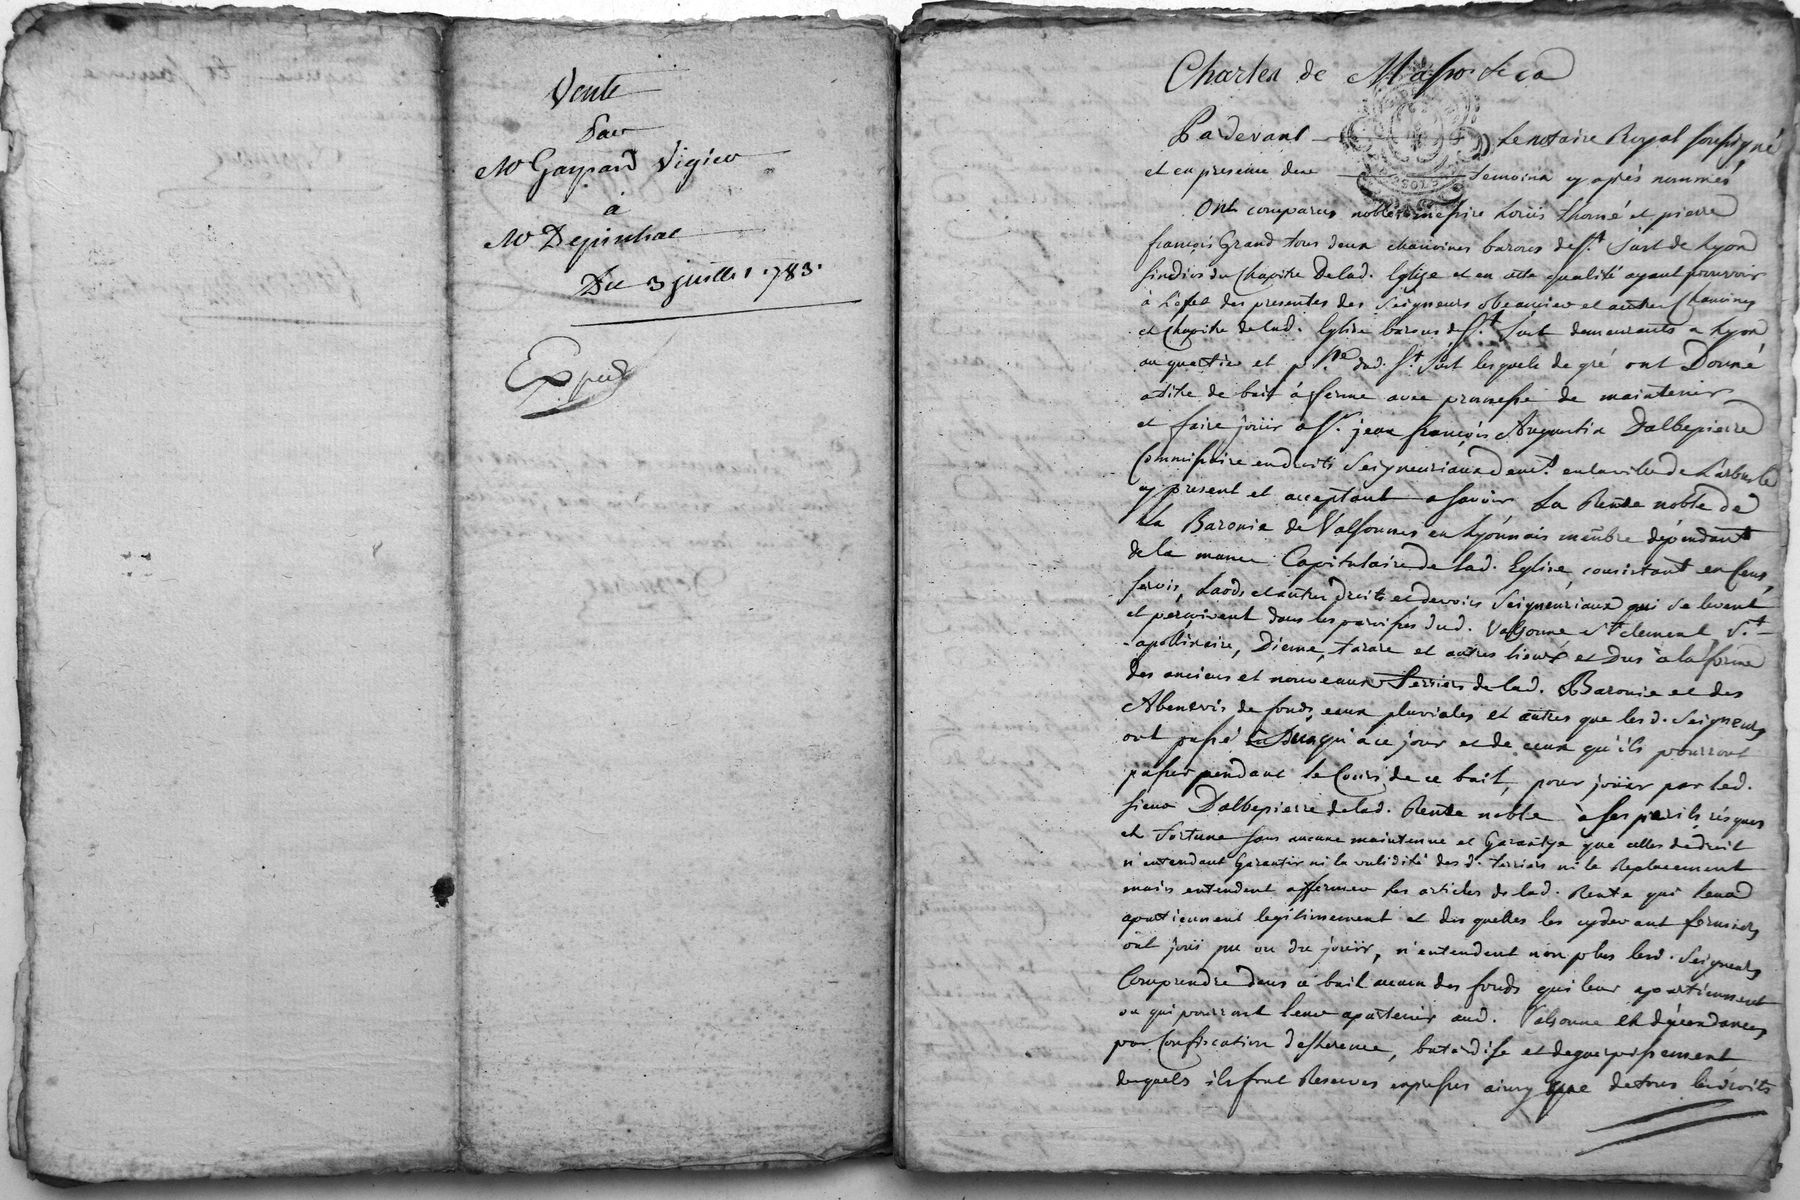 Vente
Par
Mr Gaspard Vigier
a
Mr Depinhac
Du 3 juillet 1783.
Exped
Charles de
Pardevant Le notaire Royal soussigné
et en presence des temoins cy aprés nommés
Ont comparus nobles messire Loüis thomé et pierre
françois Grand tous deux chanoines barons de St. Just de Lyon
sindics du Chapitre de lad. Eglize et en cette qualité ayant pouvoir
à L'effet des presentes des Seigneurs obeancier et autres Chanoines
et Chapitre de lad. Eglise barons de St. Just demeurants a Lyon
au quartier et psse. dud. St. Just lesquels de gré ont Donné
a titre de bail à ferme avec promesse de maintenir
et faire joüir a Sr. jean françois Augustin Dalbepierre
Commissaire en droits Seigneuriaux demt. en la ville de Larbresle
cy present et acceptant a savoir La Rente noble de
La Baronie de Valsonnes en Lyonnois membre dépendant
de la manse Capitulaire de lad. Eglise, consistant en Cens,
servis, Laods et autres droits et devoirs Seigneuriaux qui se levent
et perçoivent dans les paroisses dud. Valsonne St clement St.
-apollinaire, Dieme, tarare et autres lieux et Dus à la forme
des anciens et nouveaux Terriers de lad. Baronie et des
Abenevis de fonds, eaux pluviales et autres que lesd. Seigneurs
ont passé jusqu'a ce jour et de ceux qu'ils pourront
passer pendant le Cours de ce bail, pour joüir par led.
sieur Dalbepierre de lad. Rente noble à ses perils, risques
et Fortune sans aucune maintenue et Garantye que celles de droit
n'entendant Garantir ni la validité desd. terriers ni le Replacement
mais entendent affermer les articles de lad. Rente qui leur
apartiennent legitimement et des quelles les cydevant fermiers
ont joüi pu ou du joüir, n'entendent non plus lesd. Seigneurs
Comprendre dans ce bail aucun des fonds qui leur apartiennent
ou qui pourront leur apartenir aud. Valsonne et dépendances
par Confiscation desherence, batardise et deguerpissement
desquels ils font Reserves expresses ainsy que de tous les droits